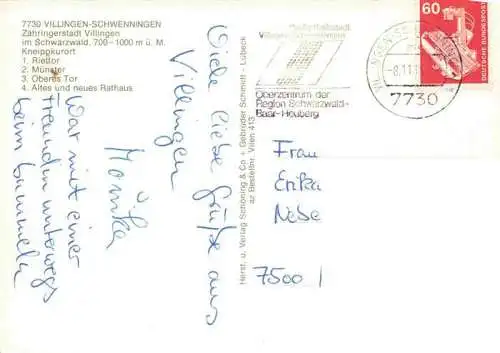 7730 VILLINGEN-SCHWENNINGEN
Zähringerstadt Villingen
im Schwarzwald, 700–1000 m ü. M.
Kneippkurort
1. Riettor
2. Münster
3. Oberes Tor
4. Altes und neues Rathaus
Viele liebe Grüße aus
Villingen
Monika
War mit einer
Freundin unterwegs
beim bummeln
Herst. u. Verlag Schöning & Co + Gebrüder Schmidt - Lübeck
az Bestellnr. Vilen 413
Oberzentrum der
Region Schwarzwald-
Baar-Heuberg
7730
60
DEUTSCHE BUNDESPOST
Frau
Erika
7500